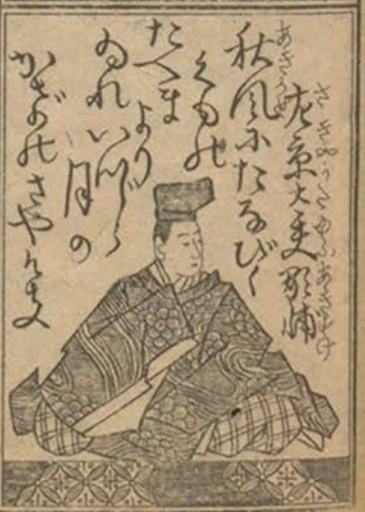 左京大夫顕輔
秋風にたなびく
くもの
たへま
より
もれいづる
月の
かげのさやけさ